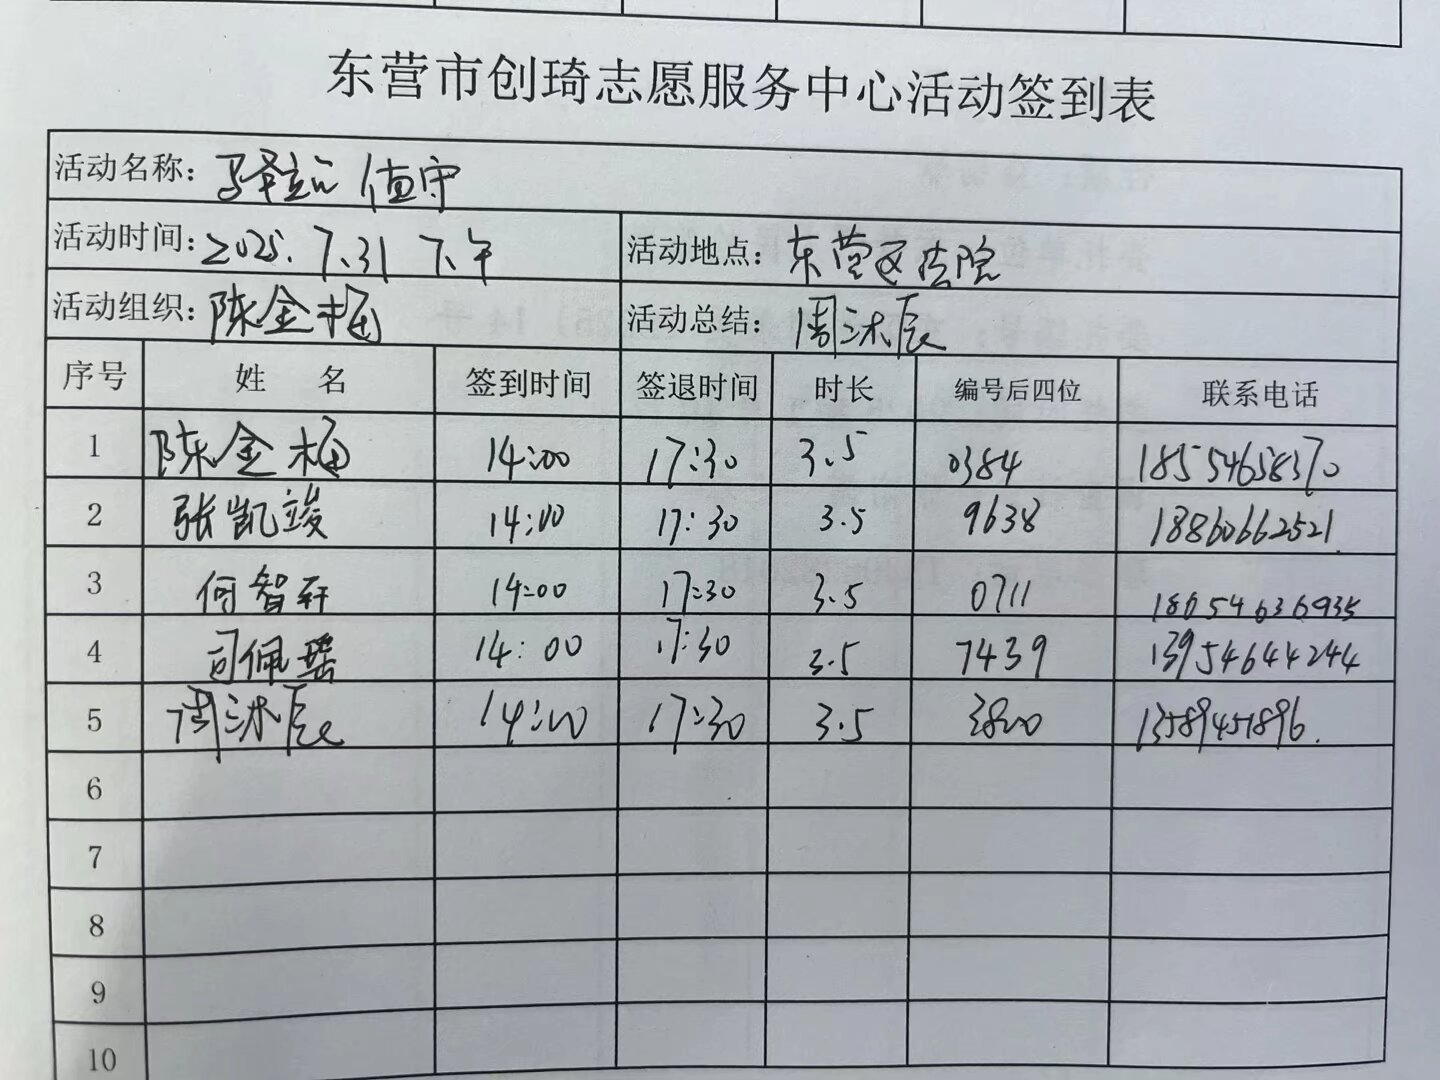 东营市创琦志愿服务中心活动签到表
活动名称：驿站值守
活动时间：2025.7.31 下午 活动地点：东营区法院
活动组织：陈金梅 活动总结：周沐辰
序号 姓名 签到时间 签退时间 时长 编号后四位 联系电话
1 陈金梅 14:00 17:30 3.5 0384 18554658370
2 张凯竣 14:00 17:30 3.5 9638 18860662521
3 何智轩 14:00 17:30 3.5 0711 18654636935
4 司佩瑶 14:00 17:30 3.5 7439 13954644244
5 周沐辰 14:00 17:30 3.5 3800 13589451896.
6
7
8
9
10